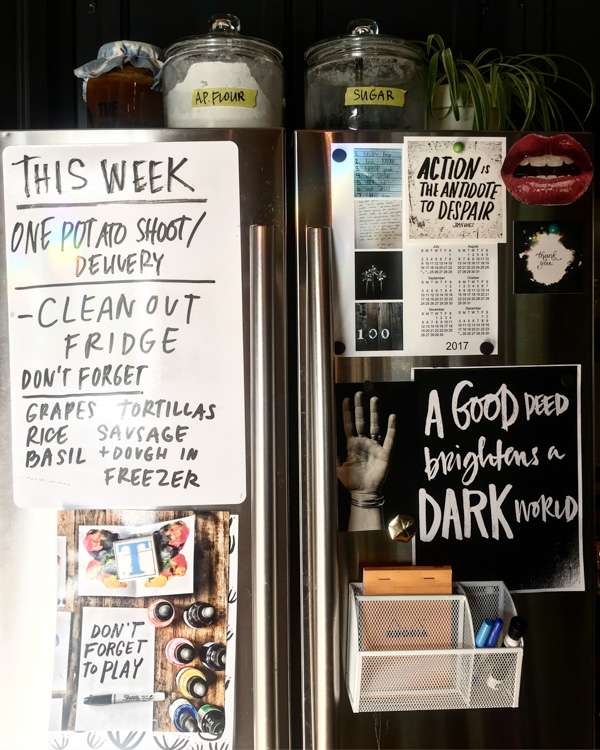 A.P. FLOUR
SUGAR
THIS WEEK
ONE POTATO SHOOT/
DELIVERY
-CLEAN OUT
FRIDGE
DON'T FORGET
GRAPES TORTILLAS
RICE SAUSAGE
BASIL + DOUGH IN
FREEZER
ACTION IS
THE ANTIDOTE
TO DESPAIR
thank
you
July August
September October
November December
100
2017
A GOOD DEED
brightens a
DARK WORLD
T
DON'T
FORGET
TO PLAY
RHODIA